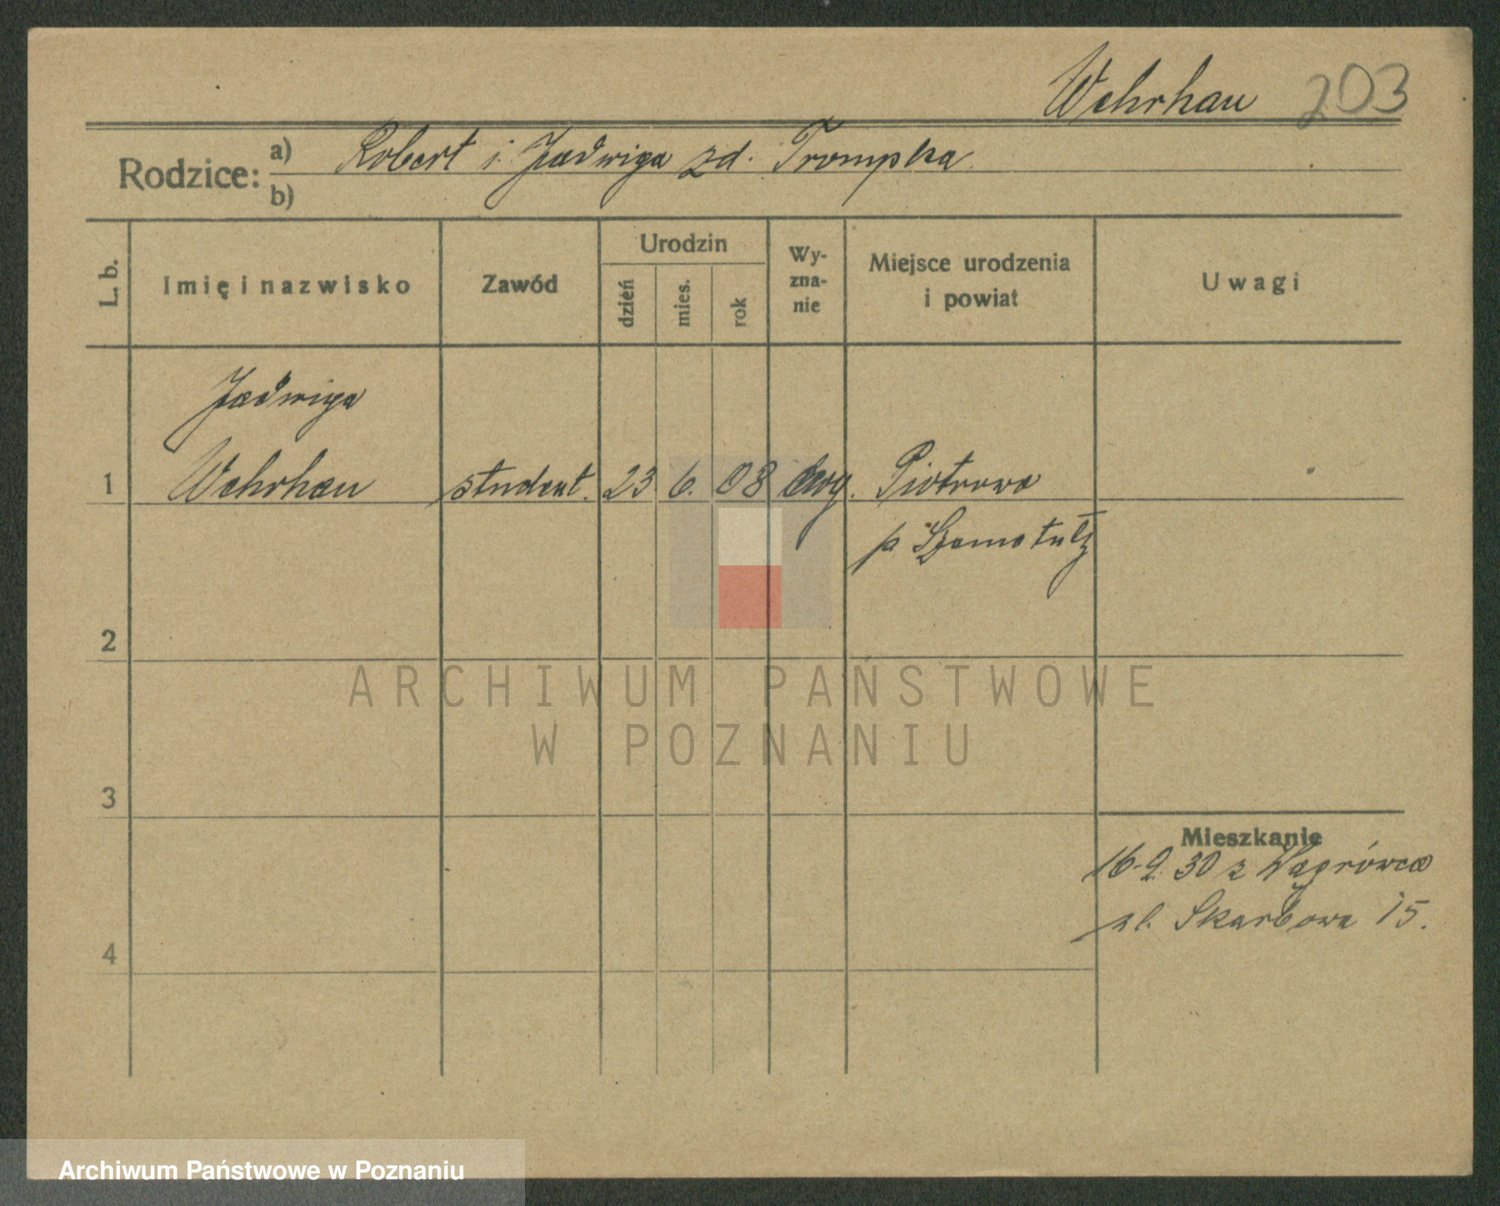 Wehrhan 203
Rodzice: a) Robert i Jadwiga zd. Trompka
b)
L. b.
Imię i nazwisko
Zawód
Urodzin
dzień
mies.
rok
Wy-
zna-
nie
Miejsce urodzenia
i powiat
Uwagi
Jadwiga
1 Wehrhan student. 23 6. 08 ewg. Piotrowo
p Szamotuły
2
3
4
Mieszkanie
16.9.30 z Wągrówca
ul. Skarbowa 15.
ARCHIWUM PAŃSTWOWE
W POZNANIU
Archiwum Państwowe w Poznaniu